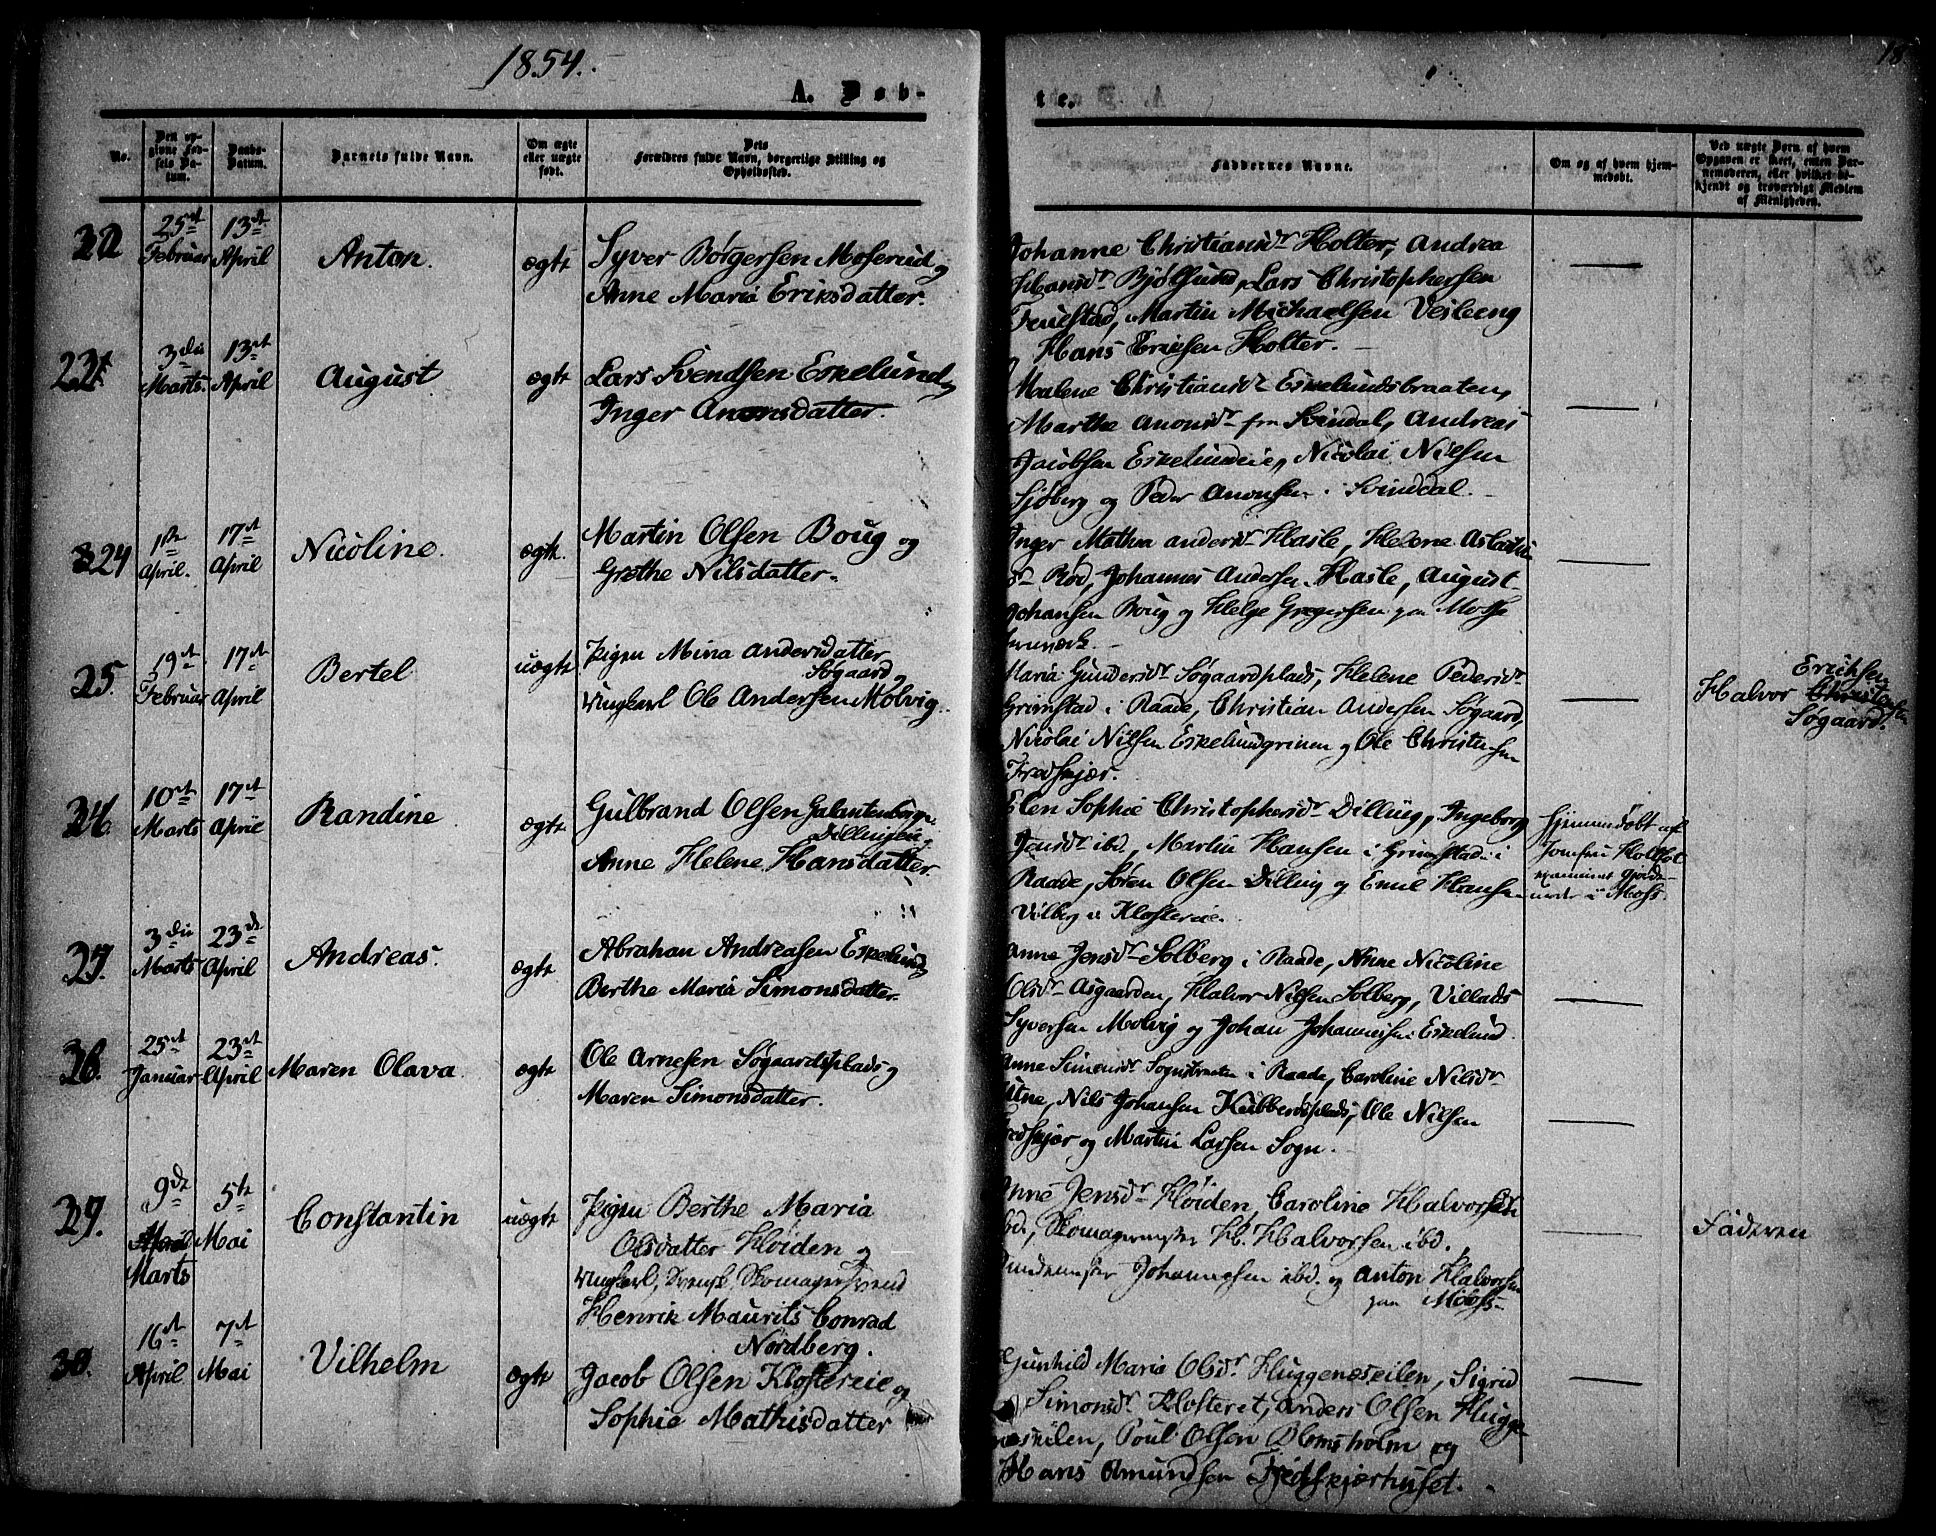 1854.
18
A. Døb-
te.
No.
Den op-
givne Fød-
sels Da-
tum.
Daabs-
Datum.
Barnets fulde Navn.
Om ægte
eller uægte
født.
Dets
Forældres fulde Navn, borgerlige Stilling og
Opholdssted.
Faddernes Navne.
Om og af hvem hjem-
medøbt.
Ved uægte Børn af hvem
Opgaven er skeet, enten Bar-
nemoderen, eller hvilket be-
kjendt og troværdigt Medlem
af Menigheden.
25de Februar
13de April
Anton.
ægte
Syver Børgersen Moserud og
Anne Maria Eriksdatter.
Johanne Christiansdr Holter, Andrea
Hansdr Bjølsund, Lars Christophersen
Martin Michaelsen Veileeng
Hans Ericksen Holter.
3die Marts.
13de April
August
ægte
Lars Svendsen Eskelund og
Inger Anonsdatter.
Malene Christiansdr Eskelundsbraaten,
Marthe Anonsdr fra Svindal, Andreas
Jacobsen Eskelundeie, Nicolai Nilsen
Sjøberg og Peder Anonsen i Svindal.
24
1ste April.
17de April
Nicoline.
ægte.
Martin Olsen Boug og
Grethe Nilsdatter.
Inger Mathea Andersdr Hasle, Helene
Rød, Johannes Andersen Hasle, August
Johansen Boug og Helge Gregersen paa Mosse
Jernværk.
25.
19de Februar
17de April
Bertel
uægte
Pigen Mina Andersdatter
Søgaard og
Ungkarl Ole Andersen Molvig.
Maria Gundersdr Søgaardsplads, Helene Pedersdr
Grimstad i Raade, Christian Andersen Søgaard,
Nicolai Nilsen Eskelundgrinen og Ole Christensen
Fredskjær.
Halvor Ericksen
Søgaard.
26.
10de Marts
17de April
Randine
ægte
Gulbrand Olsen Galantenborg
Dillingen,
Anne Helene Hansdatter.
Elen Sophie Christophersdr Dilling, Ingeborg
Jensdr ibd., Martin Hansen i Grimstad i
Raade, Søren Olsen Dilling og Emil Hansen
Vilberg i Klostereie.
Hjemmedøbt af
Jomfru Holtfot
examineret Gjorde-
moder i Moss.
27.
3die Marts
23de April
Andreas.
ægte
Abraham Andreasen Eskelund og
Berthe Maria Simonsdatter.
Anne Jensdr Solberg i Raade, Anne Nicoline
Olsdr Asgaarden, Halvor Nilsen Solberg, Villads
Syversen Molvig og Johan Johannesen Eskelund.
28.
25de Januar
23de April
Maren Olava
ægte
Ole Arnesen Søgaardsplads og
Maren Simonsdatter.
Anne Simensdr Sognstraten i Raade, Caroline Nilsdr
Nils Johansen Kubberødsplads, Ole Nilsen
Fredskjær og Martin Larsen Sogn.
29.
9de Marts
5te Mai
Constantin
uægte
Pigen Berthe Maria
Olsdatter Høiden og
Ungkarl, Svensk, Skomagersvend
Henrik Maurits Conrad
Nordberg.
Anne Jensdr Høiden, Caroline Halvorsdr
ibd, Skomagermester H. Halvorsen ibd.,
Johannesen ibd. og Anton Halvorsen
paa Moss.
Faderen
30.
16de April
7de Mai
Vilhelm
ægte
Jacob Olsen Klostereie og
Sophie Mathisdatter
Gunhild Maria Olsdr Huggenæseilen, Sigrid
Simonsdr Klosteret, Anders Olsen Hugge-
næseilen, Poul Olsen Blomsholm og
Hans Amundsen Fredskjærhuset.